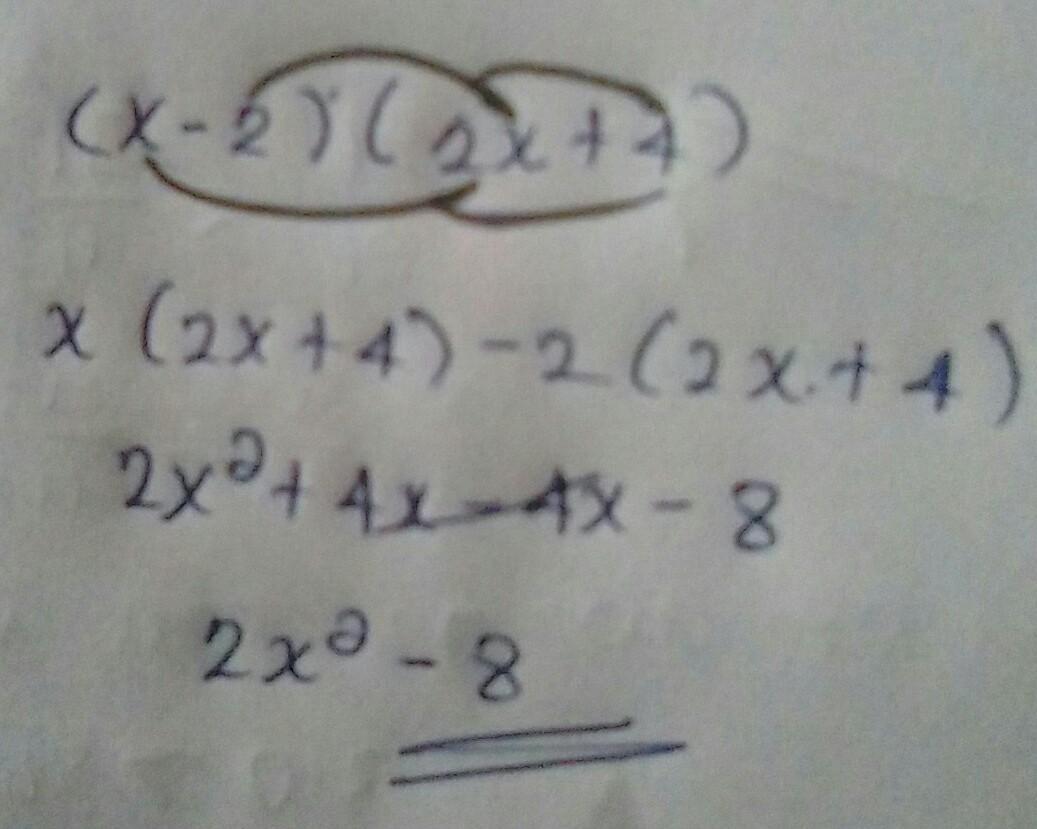 (x-2)(2x+4)
x(2x+4)-2(2x+4)
2x²+4x-4x-8
2x²-8